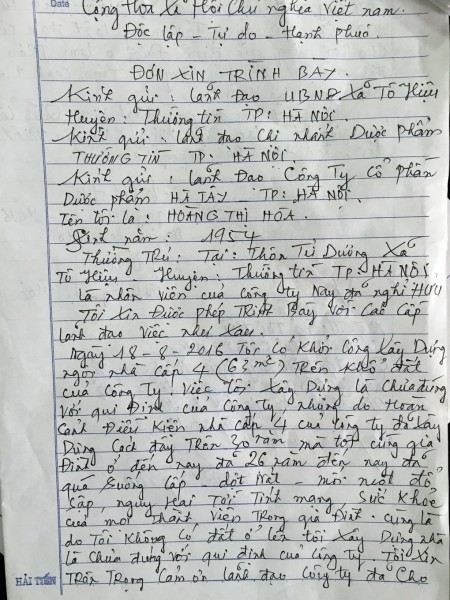 Date
Cộng Hòa Xã Hội Chủ nghĩa Việt nam.
Độc lập - Tự do - Hạnh phúc.
ĐƠN XIN TRÌNH BÀY.
Kính gửi: Lãnh Đạo UBND Xã Tô Hiệu
Huyện: Thường tín TP: HÀ NỘI.
Kính gửi: Lãnh đạo Chi nhánh Dược phẩm
THƯỜNG TÍN TP: HÀ NỘI.
Kính gửi: Lãnh Đạo Công Ty Cổ phần
Dược phẩm HÀ TÂY TP: HÀ NỘI.
Tên tôi là: HOÀNG THỊ HÓA.
Sinh năm: 1954
Thường Trú: Tại: Thôn Tử Dương Xã
Tô Hiệu Huyện: Thường tín TP: HÀ NỘI.
là nhân viên của công ty Nay đã nghỉ HƯU
Tôi Xin Được phép Trình Bày Với Các Cấp
Lãnh đạo Việc như sau.
Ngày 18-8-2016 Tôi có Khởi Công Xây Dựng
ngôi nhà Cấp 4 (63m²) Trên Khu đất
của Công Ty. Việc Tôi Xây Dựng là Chưa đúng
Với qui Định của Công Ty, nhưng do Hoàn
Cảnh Điều Kiện nhà Cấp 4 của Công ty đã Xây
Dựng Cách đây Trên 30 năm mà tôi cùng gia
Đình ở đến nay đã 26 năm đến nay đã
quá xuống cấp - dột Nát - mối mọt đổ
Sập, nguy Hại Tới Tính mạng Sức Khỏe
của mọi Thành Viên Trong gia Đình. cũng là
do Tôi Không có đất ở lên tôi Xây Dựng nhà
là Chưa đúng với qui định của công Ty. Tôi Xin
Trân Trọng Cảm ơn Lãnh đạo Công ty đã Cho
HẢI TIẾN